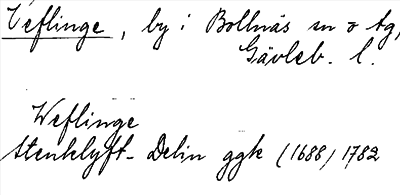 Veflinge, by i Bollnäs sn o tg,
Gävleb. l.
Weflinge
Stenklyft- Delin ggk (1688) 1782